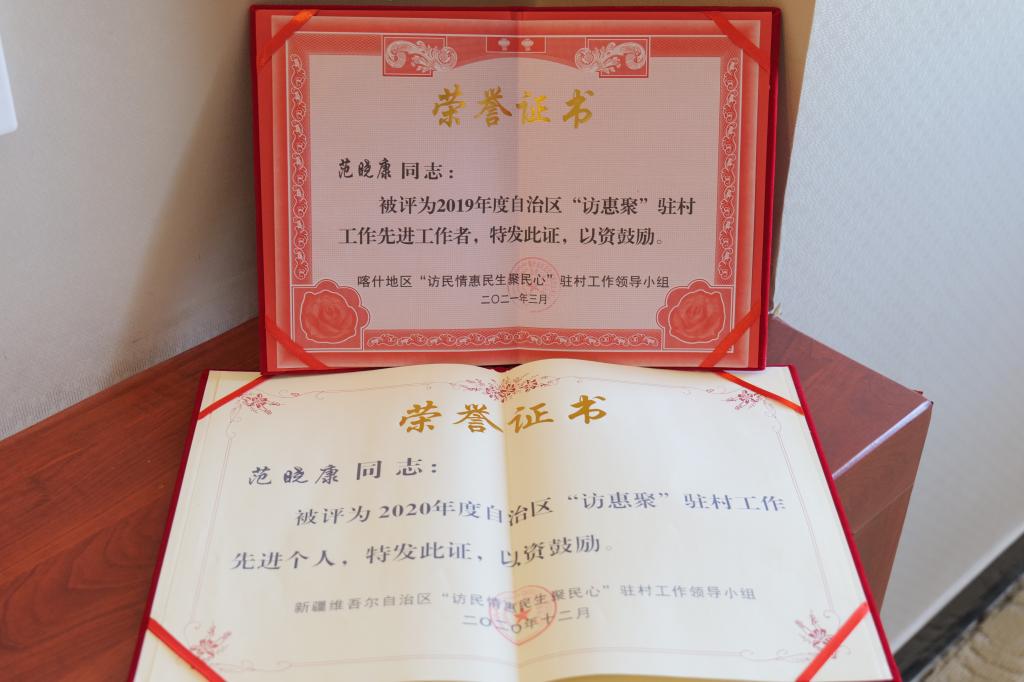 荣誉证书
范晓康同志：
被评为2019年度自治区“访惠聚”驻村
工作先进工作者，特发此证，以资鼓励。
喀什地区“访民情惠民生聚民心”驻村工作领导小组
二〇二一年三月
荣誉证书
范晓康同志：
被评为2020年度自治区“访惠聚”驻村工作
先进个人，特发此证，以资鼓励。
新疆维吾尔自治区“访民情惠民生聚民心”驻村工作领导小组
二〇二〇年十二月